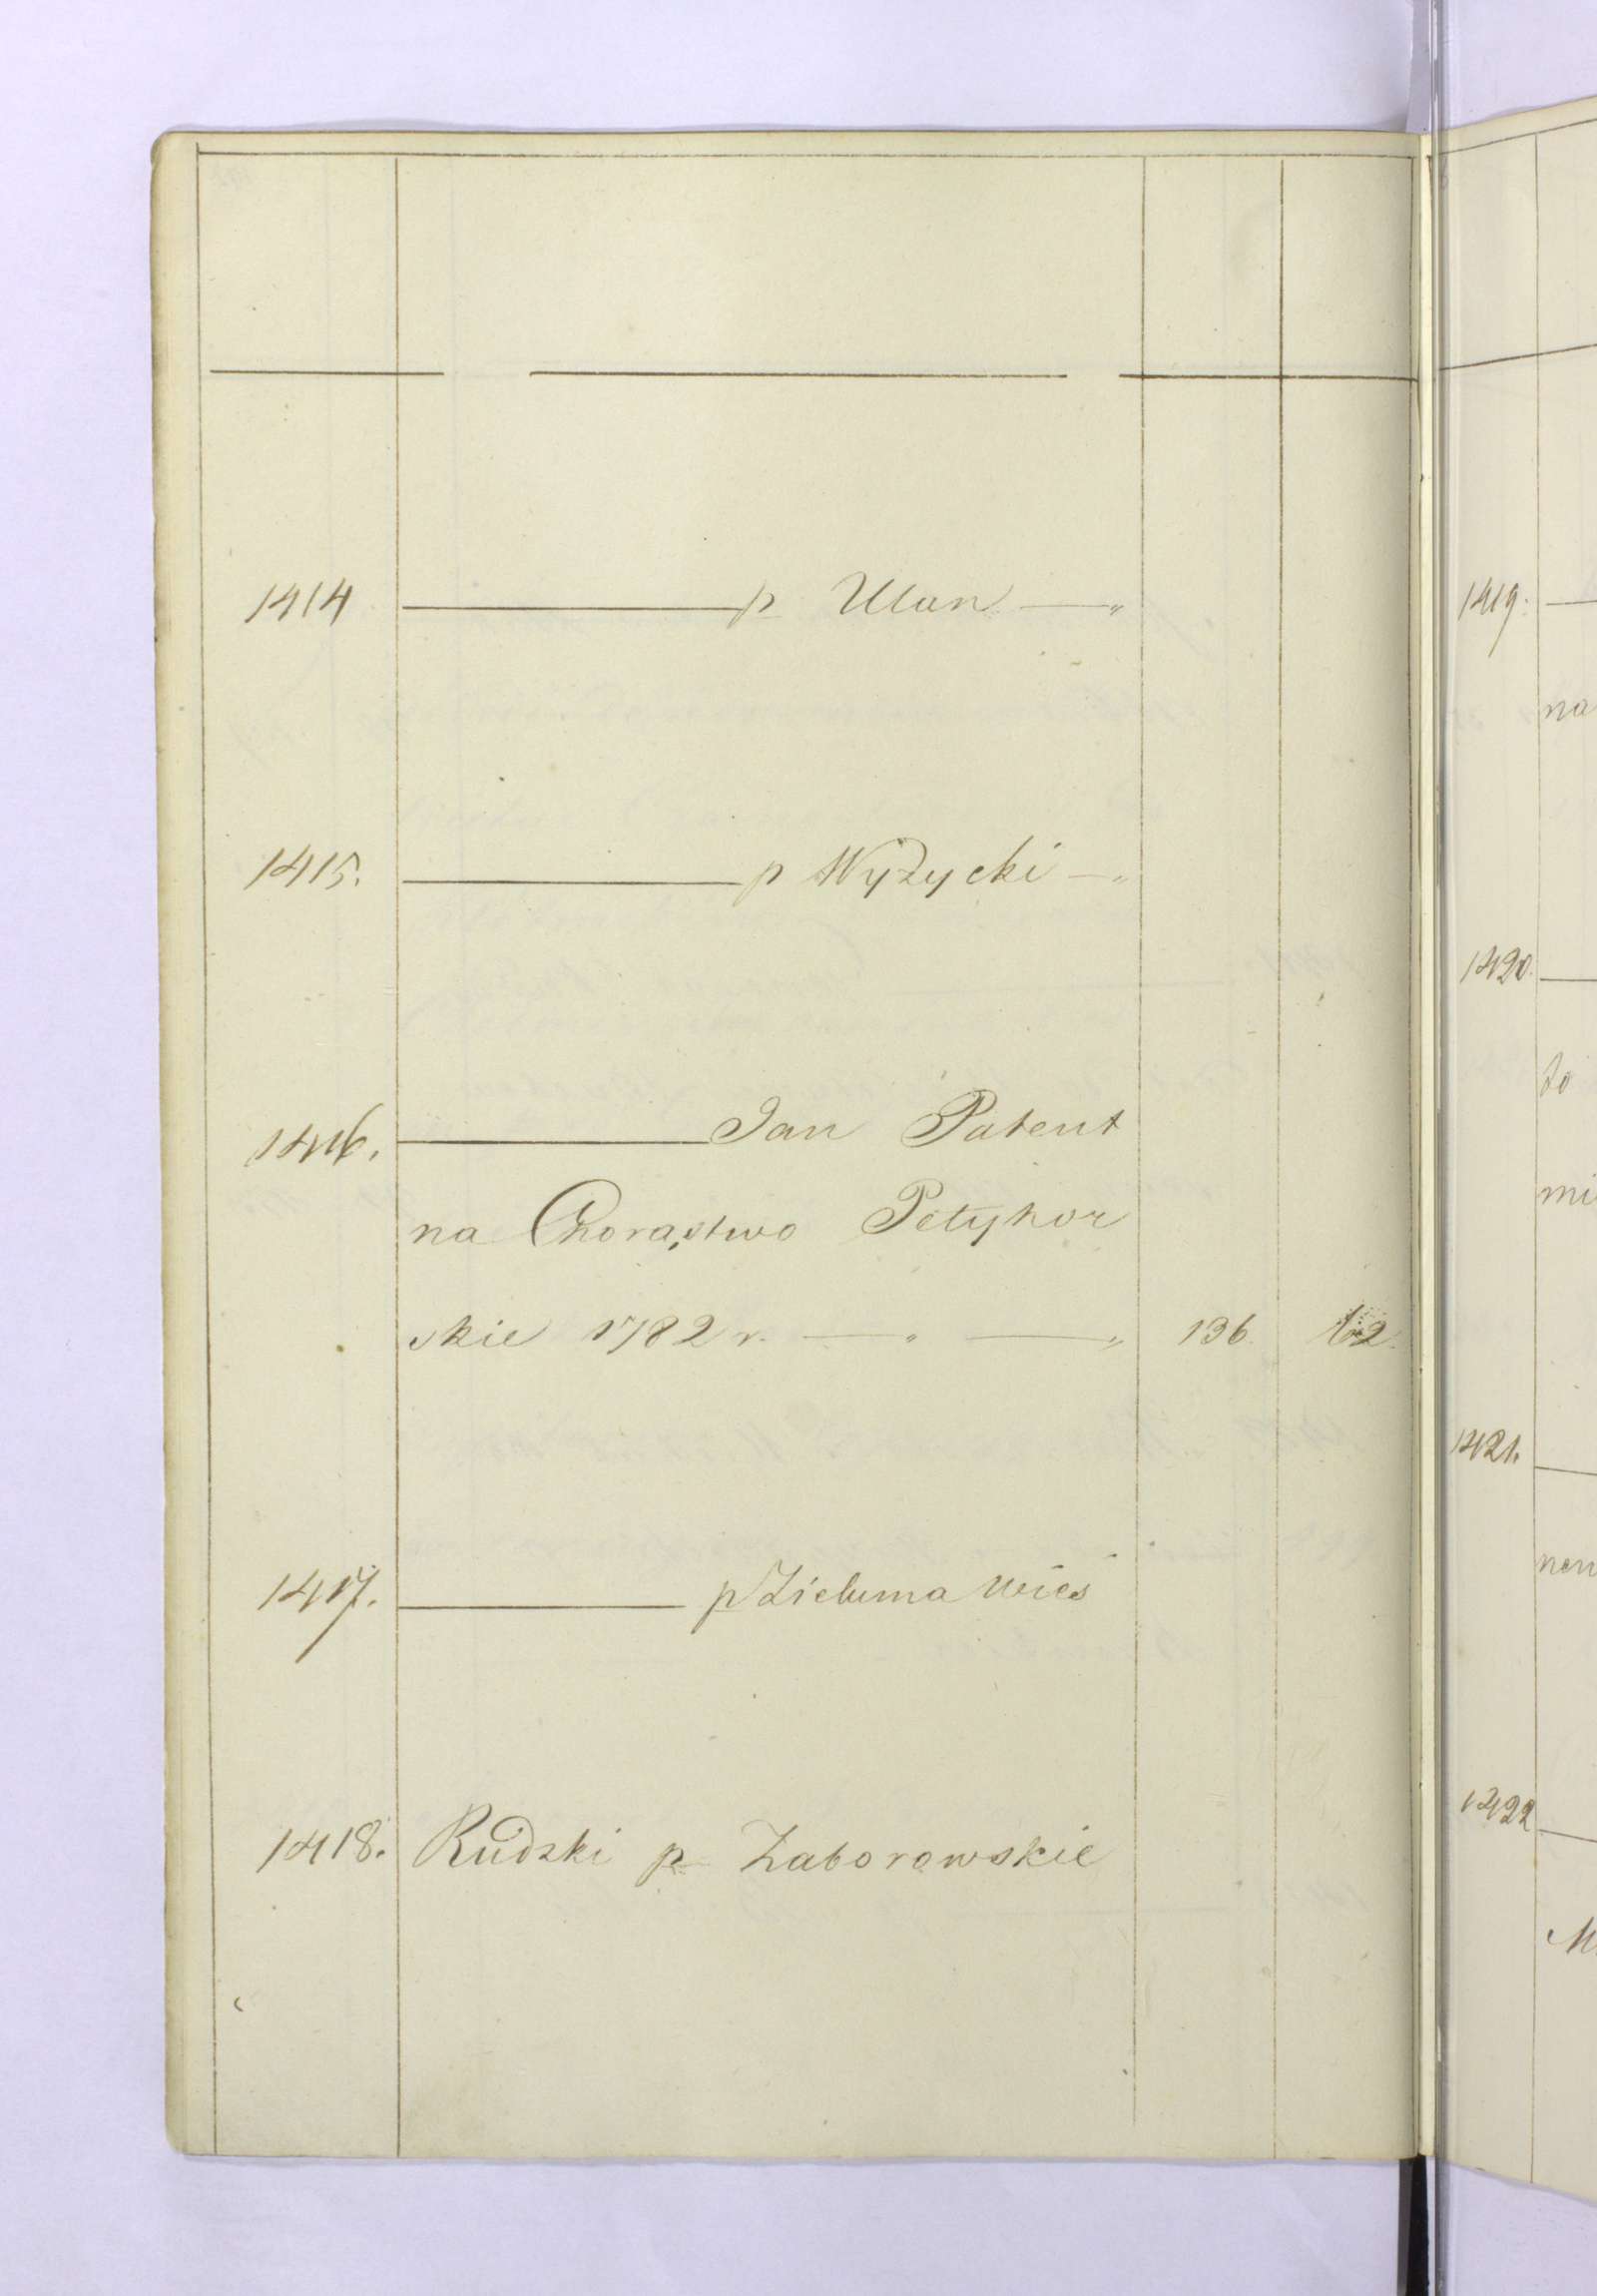 1414 p Ulan
1415. p Wyżycki
1416. Jan Patent
na Chorąstwo Petyhor
skie 1782 r. 136. 62.
1417. p wieś
1418. Rudzki p Zaborowskie
1419.
na
1420.
to
mi
1421.
1422